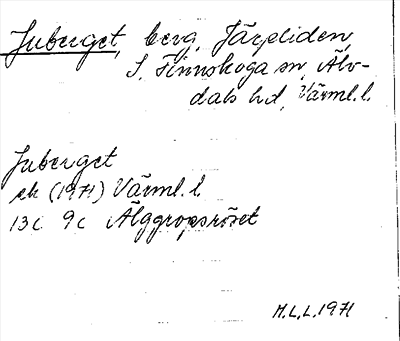 Juberget, berg, Järpliden,
S. Finnskoga sn, Älv-
dals hd, Värml. l.
Juberget
ek (1971) Värml. l.
13C 9c Älggropsröset
M.L.L. 1971